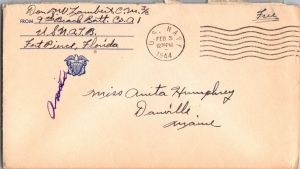 Don W Lambert C.M. 3/c Free
FROM 9th Beach Batt. Co. A1
U.S.N.A.T.B.
Fort Pierce, Florida
U.S. NAVY
FEB 5
12 30 PM
1944
Miss Anita Humphrey
Danville
Maine